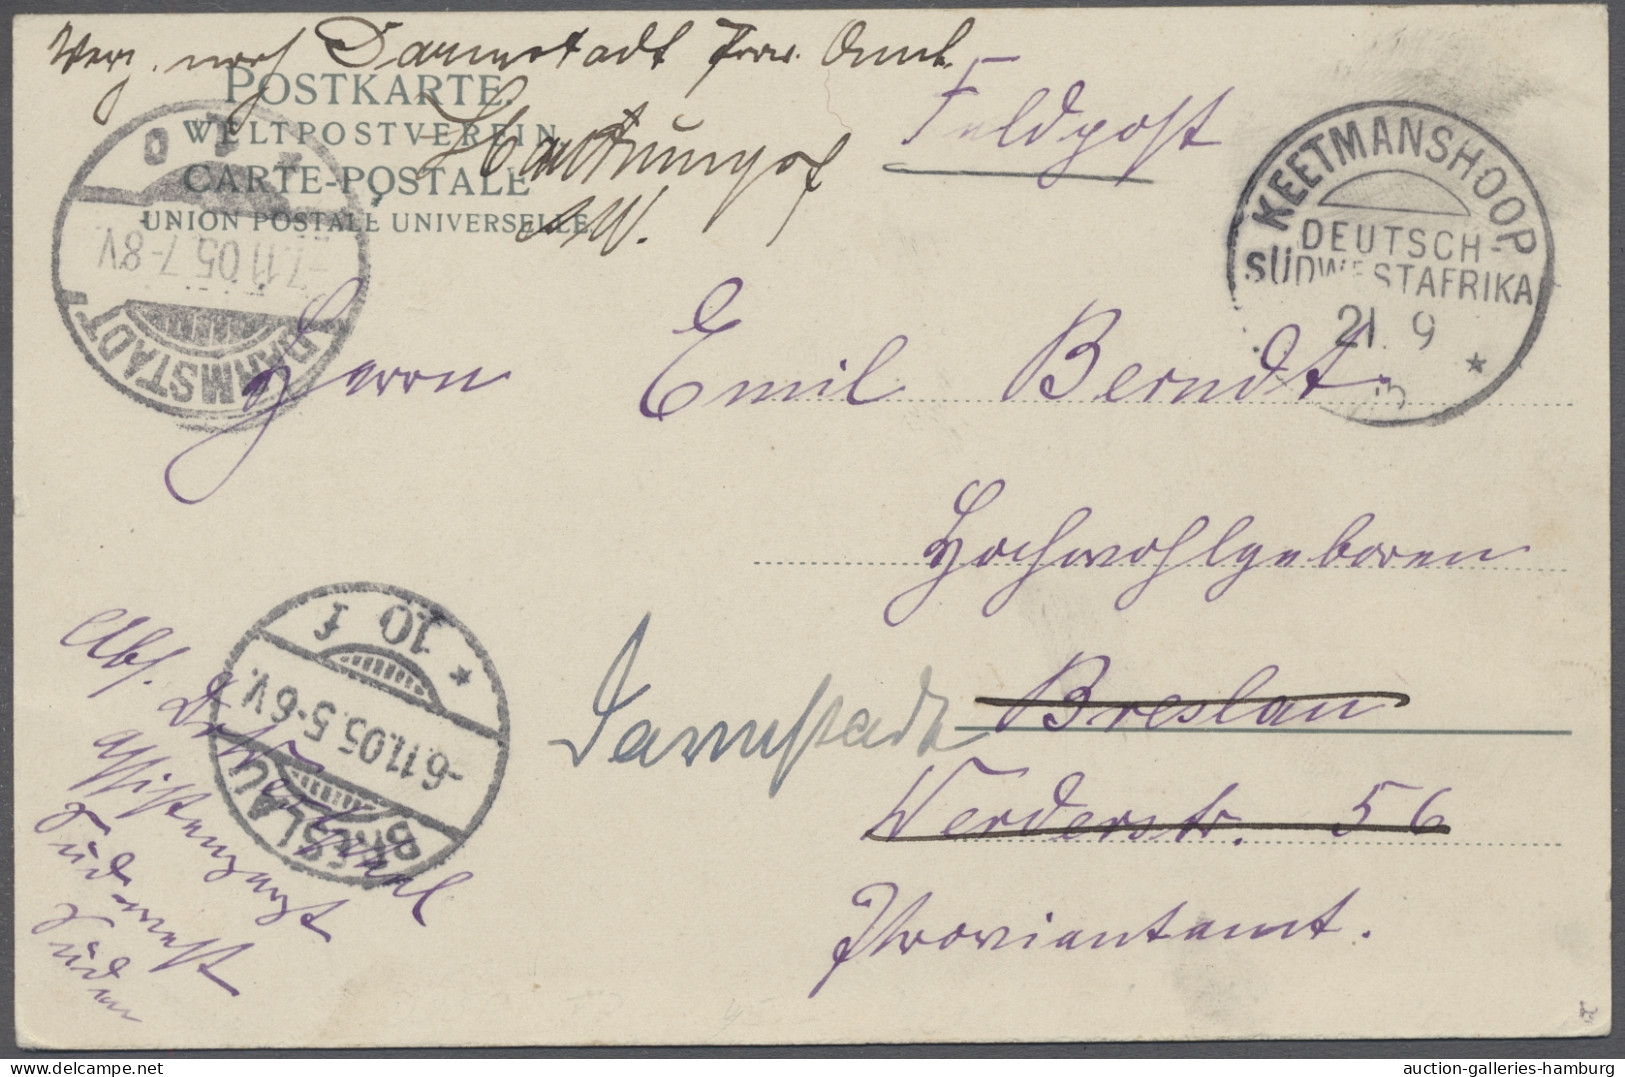 Verz. nach Darmstadt Prov. Amt.
POSTKARTE.
WELTPOSTVEREIN
CARTE-POSTALE
UNION POSTALE UNIVERSELLE
Feldpost
KEETMANSHOOP
DEUTSCH-
SÜDWESTAFRIKA
21 9
*
DARMSTADT 1
-7.11.05.7-8V.
* 1 0
Herrn Emil Berndt
Hochwohlgeboren
Breslau
Darmstadt
Werderstr. 56
Proviantamt.
BRESLAU
-6.11.05.5-6V.
* 10 f
Abs.
Assistenzarzt
Südwest
Süden
auction-galleries-hamburg